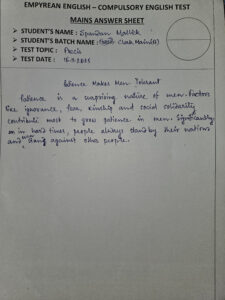 EMPYREAN ENGLISH – COMPULSORY ENGLISH TEST
MAINS ANSWER SHEET
➤ STUDENT'S NAME : Spandan Mallick
➤ STUDENT'S BATCH NAME : Clark Mains(A)
➤ TEST TOPIC : Precis
➤ TEST DATE :
Patience Makes Men Tolerant
Patience is a surprising nature of men. Factors
like ignorance, fear, kinship and social solidarity
contribute most to grow patience in men. Significantly,
in hard times, people always stand by their nations
and strong against other people.